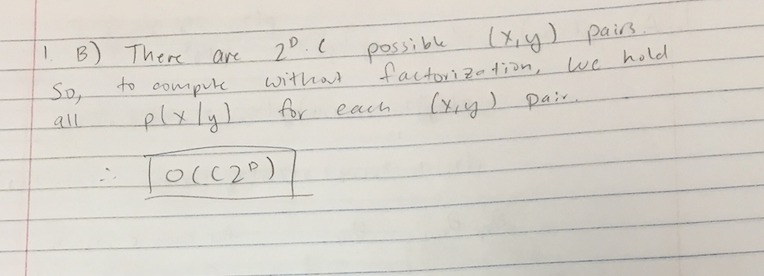 1. B) There are 2^D · C possible (x,y) pairs.
So, to compute without factorization, we hold
all p(x|y) for each (x,y) pair.
∴ O(C2^D)